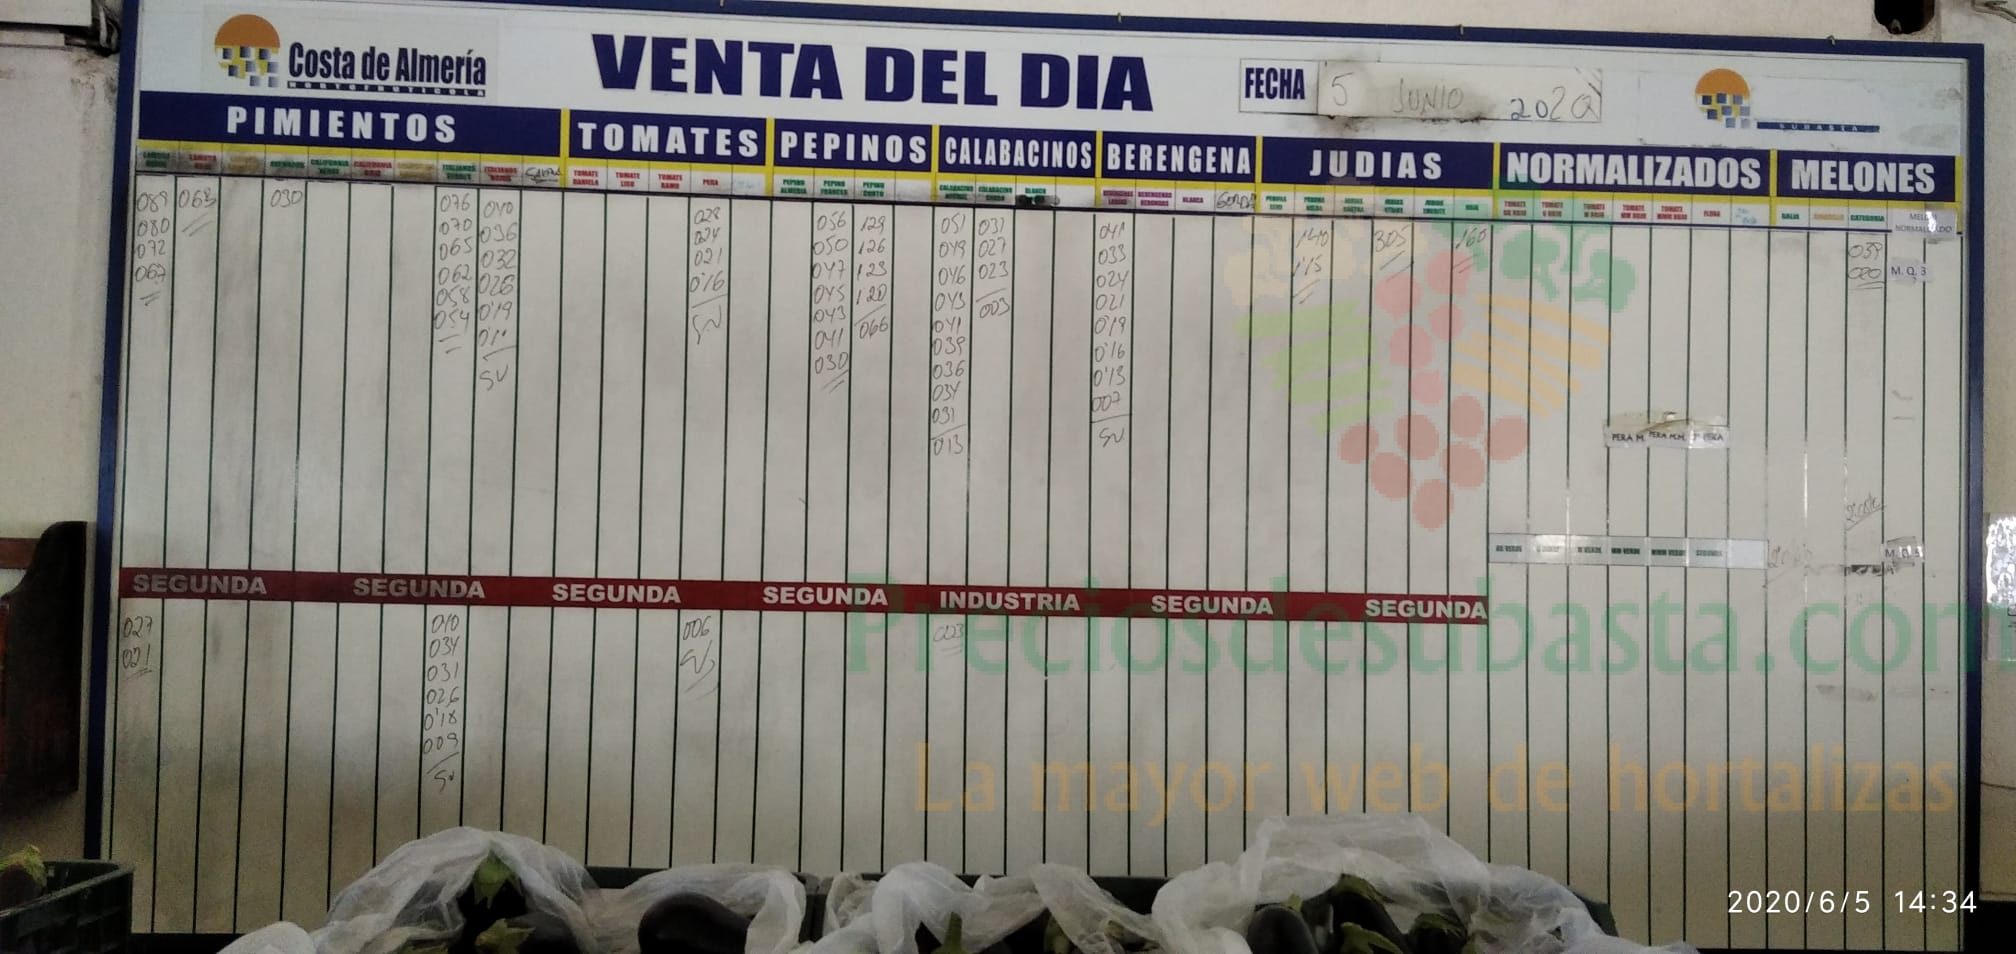 Costa de Almería
HORTOFRUTICOLA
VENTA DEL DIA
FECHA 5 JUNIO 2020
SUBASTA
PIMIENTOS TOMATES PEPINOS CALABACINOS BERENGENA JUDIAS NORMALIZADOS MELONES
TOMATE DANIELA
TOMATE LISO
TOMATE RAMO
PERA
PEPINO ALMERIA
PEPINO FRANCES
PEPINO CORTO
BLANCA
GORDA
GALIA
CATEGORIA
089
080
072
067
063
030
076
070
065
062
058
054
040
036
032
026
0'19
SV
028
024
021
0'16
SV
056
050
047
045
043
041
030
129
126
123
120
066
051
049
046
043
041
039
036
034
031
013
031
027
023
003
041
033
024
021
0'19
0'16
0'13
007
SV
140
1'15
305
160
039
020
M. Q. 3
PERA M. PERA M.M.
SEGUNDA SEGUNDA SEGUNDA SEGUNDA INDUSTRIA SEGUNDA SEGUNDA
027
021
040
034
031
026
0'18
009
SV
006
SV
003
Preciosdesubasta.com
La mayor web de hortalizas
2020/6/5 14:34